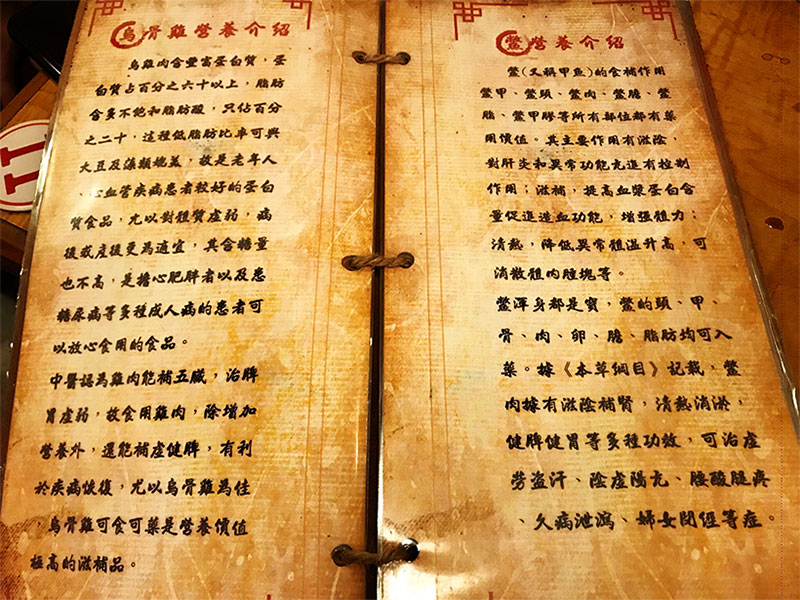 烏骨雞營養介紹
烏雞肉含豐富蛋白質，蛋
白質占百分之六十以上，脂肪
含多不飽和脂肪酸，只佔百分
之二十，這種低脂肪比率可與
大豆及藻類媲美，故是老年人
、心血管疾病患者較好的蛋白
質食品，尤以對體質虛弱，病
後或產後更為適宜，其含糖量
也不高，是擔心肥胖者以及患
糖尿病等多種成人病的患者可
以放心食用的食品。
中醫認為雞肉能補五臟，治脾
胃虛弱，故食用雞肉，除增加
營養外，還能補虛健脾，有利
於疾病恢復，尤以烏骨雞為佳
，烏骨雞可食可藥是營養價值
極高的滋補品。
鱉營養介紹
鱉(又稱甲魚)的食補作用
鱉甲、鱉頭、鱉肉、鱉膽、鱉
脂、鱉甲膠等所有部位都有藥
用價值。其主要作用有滋陰，
對肝炎和異常功能亢進有控制
作用；滋補，提高血漿蛋白含
量促進造血功能，增強體力；
清熱，降低異常體溫升高，可
消散體內腫塊等。
鱉渾身都是寶，鱉的頭、甲、
骨、肉、卵、膽、脂肪均可入
藥。據《本草綱目》記載，鱉
肉據有滋陰補腎，清熱消淤，
健脾健胃等多種功效，可治虛
勞盜汗、陰虛陽亢、腰酸腿疼
、久病泄瀉、婦女閉經等症。